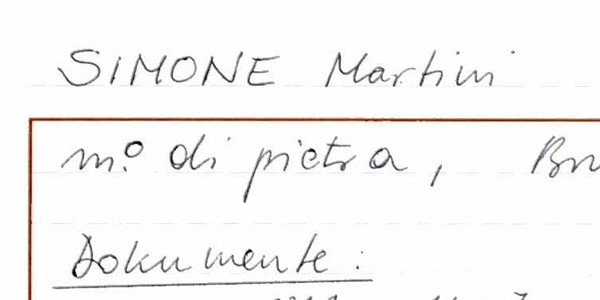 SIMONE Martini
m.o di pietra,
Dokumente: